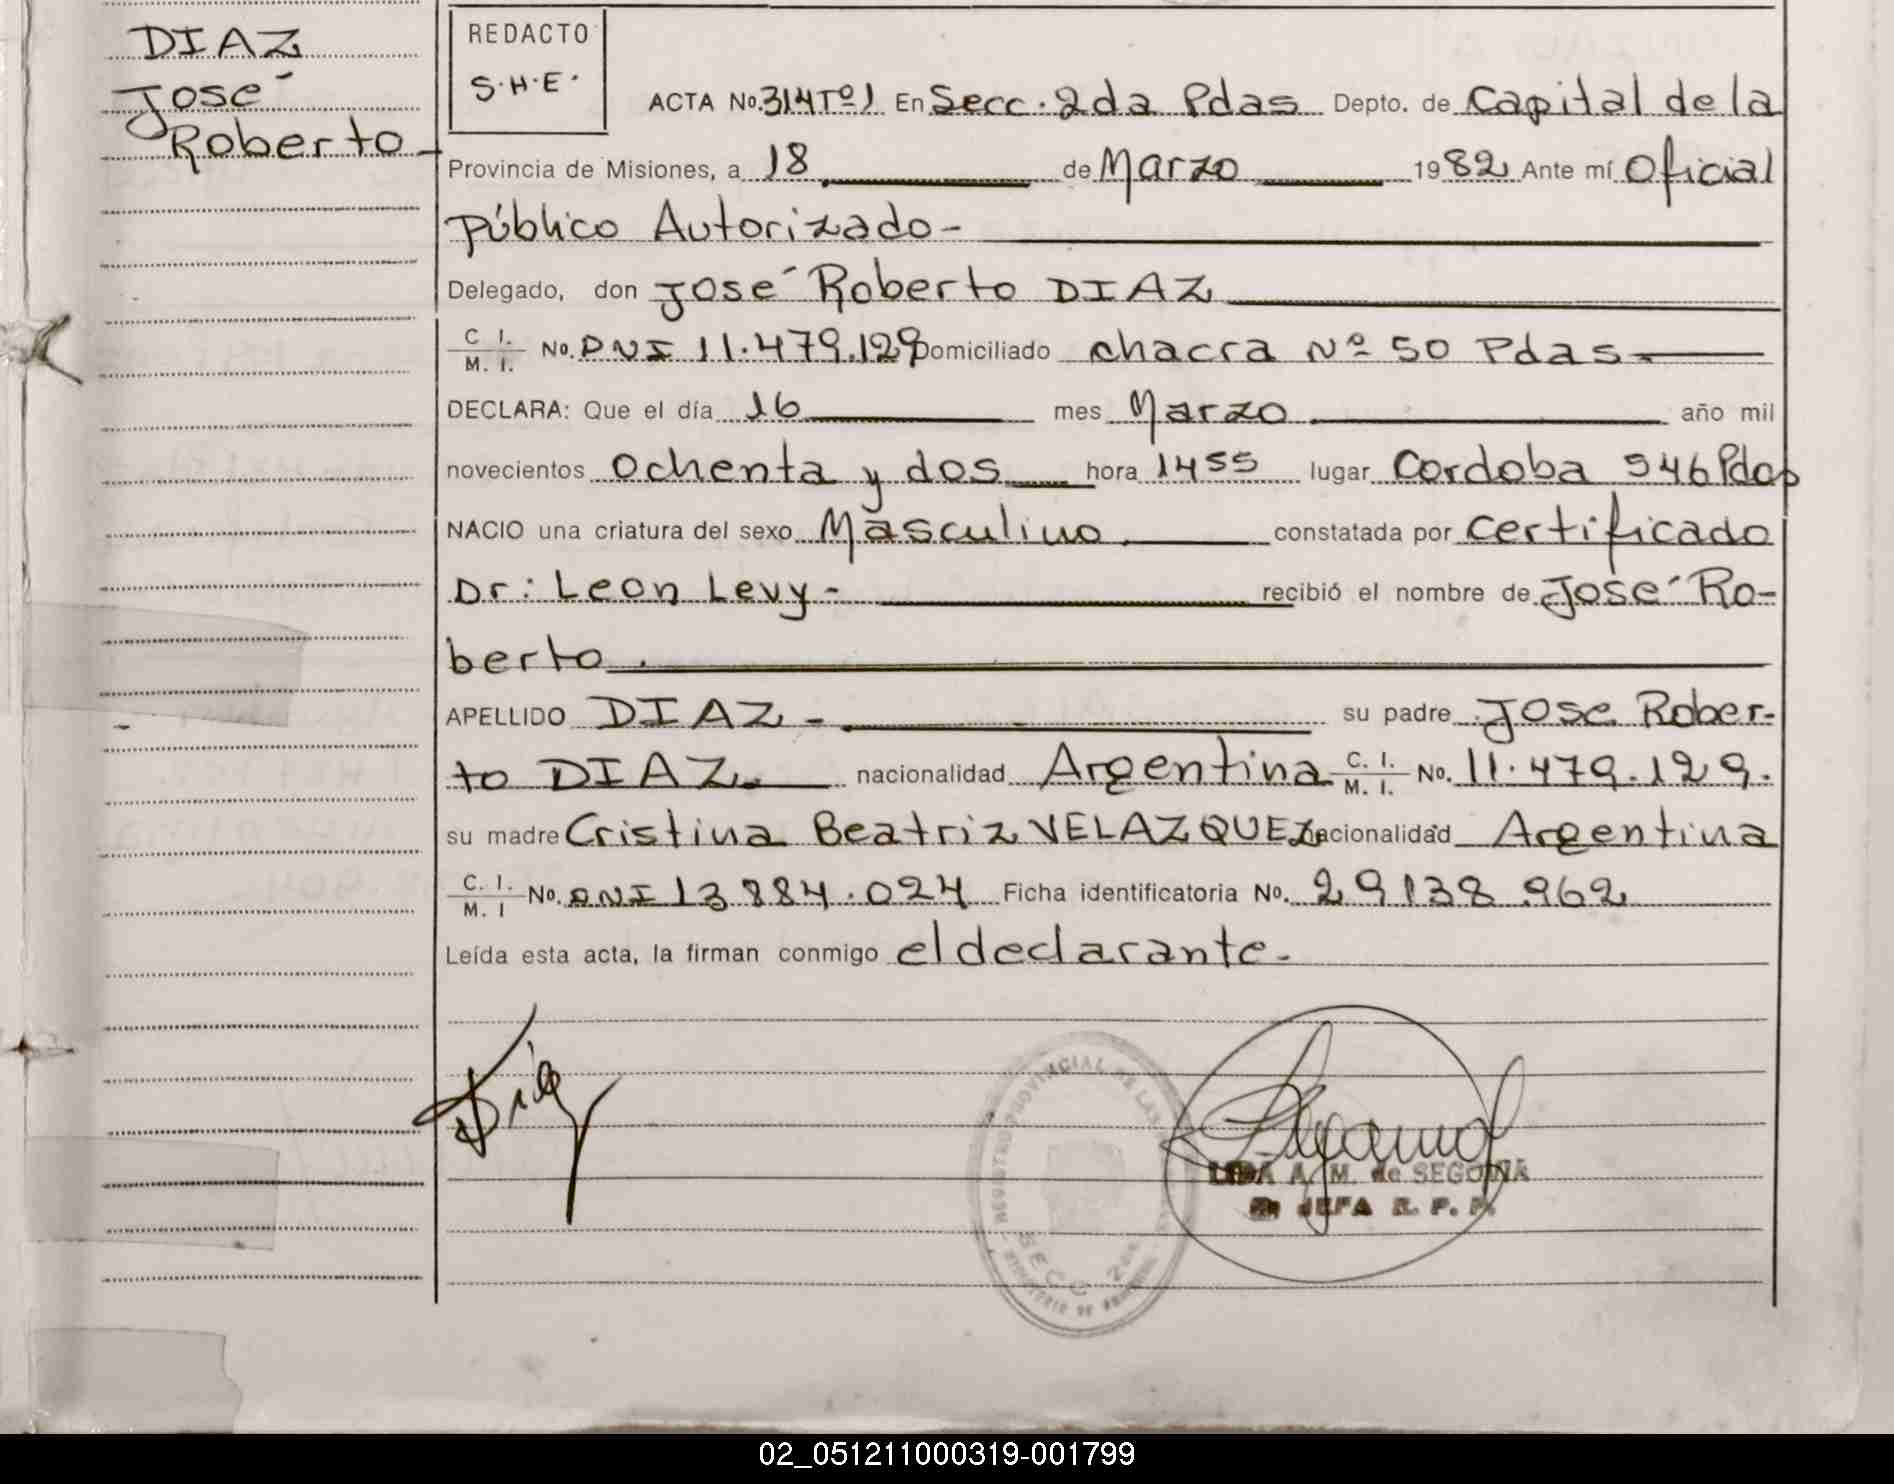 DIAZ
José
Roberto
REDACTO
S.H.E.
ACTA No. 314 Tº 1 En Secc. 2da Pdas Depto. de Capital de la
Provincia de Misiones, a 18 de Marzo 1982 Ante mí Oficial
Público Autorizado-
Delegado, don José Roberto DIAZ
C. I. / M. I. No. DNI 11.479.129 Domiciliado chacra Nº 50 Pdas
DECLARA: Que el día 16 mes Marzo año mil
novecientos ochenta y dos hora 1455 lugar Cordoba 546 Pdas
NACIO una criatura del sexo Masculino constatada por certificado
Dr: Leon Levy- recibió el nombre de José Ro-
berto.
APELLIDO DIAZ - su padre Jose Rober-
to DIAZ. nacionalidad Argentina C. I. / M. I. No. 11.479.129.
su madre Cristina Beatriz VELAZQUEZ nacionalidad Argentina
C. I. / M. I No. DNI 13 884.024 Ficha identificatoria No. 29138.962
Leída esta acta, la firman conmigo el declarante-
Diaz
REGISTRO PROVINCIAL DE LAS
SECC 2da
LIDA A. M. de SEGOVIA
JEFA R. P. P.
02_051211000319-001799